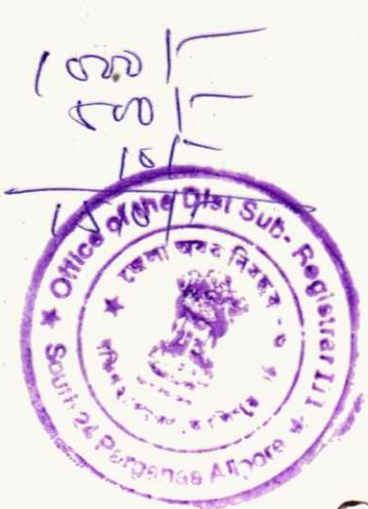 1000/-
500/-
10/-
1510/-
Office of the Dist Sub-Registrar III
South 24 Parganas Alipore
জেলা অবর নিবন্ধক - ৩